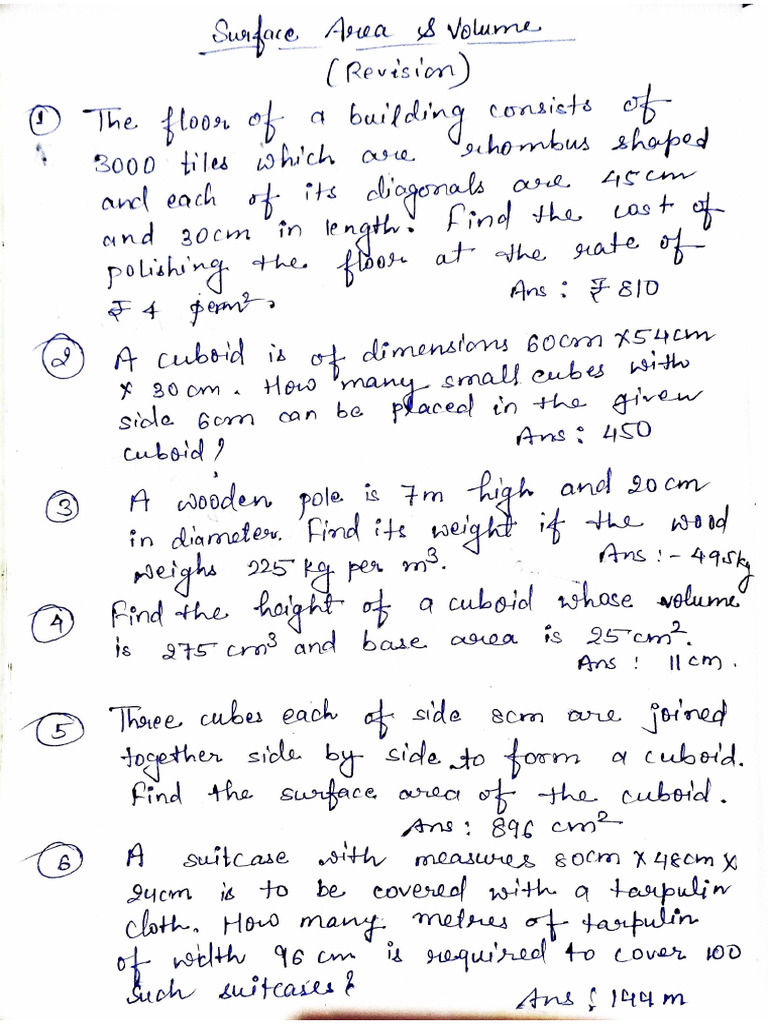 Surface Area & Volume
(Revision)
① The floor of a building consists of
3000 tiles which are rhombus shaped
and each of its diagonals are 45cm
and 30cm in length. Find the cost of
polishing the floor at the rate of
₹ 4 per m². Ans : ₹ 810
② A cuboid is of dimensions 60cm × 54cm
× 30cm. How many small cubes with
side 6cm can be placed in the given
cuboid? Ans : 450
③ A wooden pole is 7m high and 20cm
in diameter. Find its weight if the wood
weighs 225 kg per m³. Ans :- 49.5kg
④ Find the height of a cuboid whose volume
is 275 cm³ and base area is 25 cm².
Ans : 11cm.
⑤ Three cubes each of side 8cm are joined
together side by side to form a cuboid.
Find the surface area of the cuboid.
Ans : 896 cm²
⑥ A suitcase with measures 80cm × 48cm ×
24cm is to be covered with a tarpulin
cloth. How many metres of tarpulin
of width 96 cm is required to cover 100
such suitcases? Ans : 144m